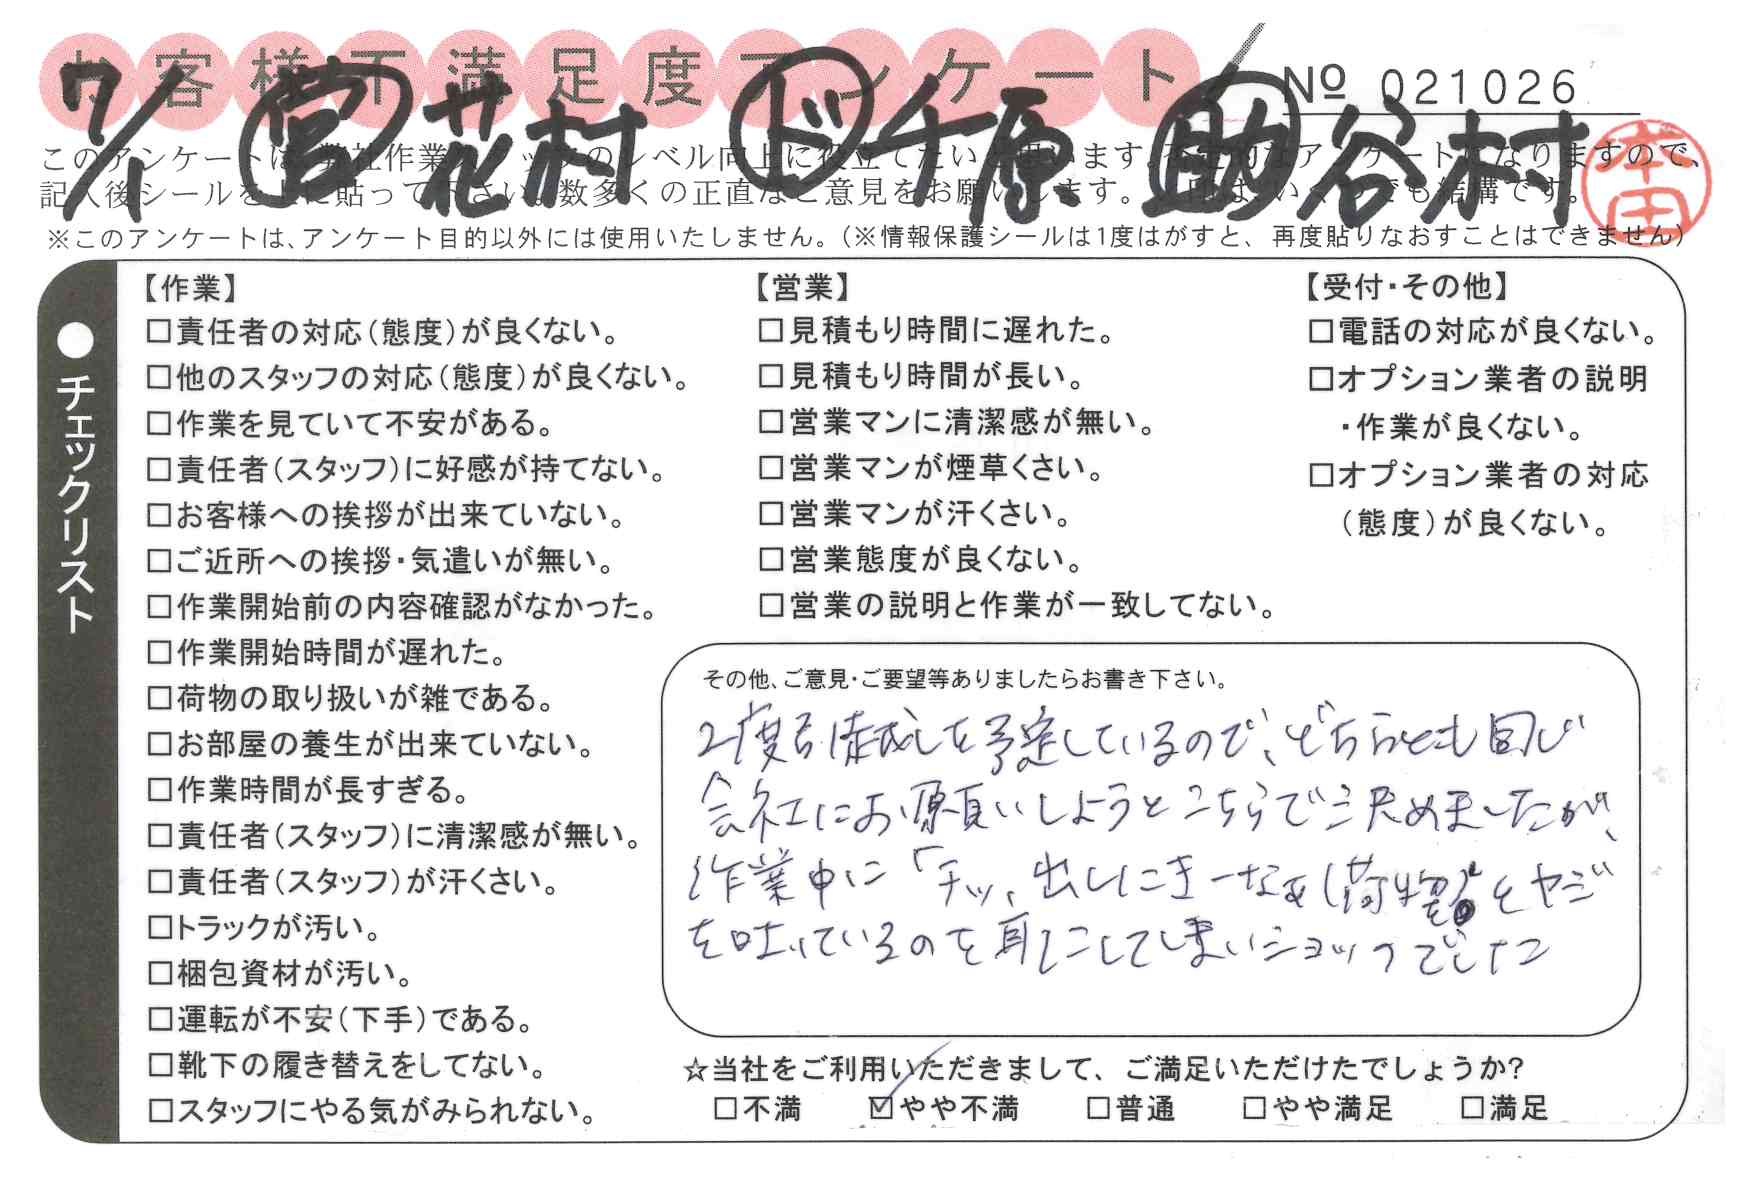 お客様不満足度アンケート
№ 021026
7/1 営 花村 ド 千原 助 谷村
本田
このアンケートは、弊社作業スタッフのレベル向上に役立てたいと思います。不定的なアンケートになりますので、
記入後シールを上に貼って下さい。数多くの正直なご意見をお願いします。 印は、いくつでも結構です。
※このアンケートは、アンケート目的以外には使用いたしません。(※情報保護シールは1度はがすと、再度貼りなおすことはできません)
●チェックリスト
【作業】
□責任者の対応(態度)が良くない。
□他のスタッフの対応(態度)が良くない。
□作業を見ていて不安がある。
□責任者(スタッフ)に好感が持てない。
□お客様への挨拶が出来ていない。
□ご近所への挨拶・気遣いが無い。
□作業開始前の内容確認がなかった。
□作業開始時間が遅れた。
□荷物の取り扱いが雑である。
□お部屋の養生が出来ていない。
□作業時間が長すぎる。
□責任者(スタッフ)に清潔感が無い。
□責任者(スタッフ)が汗くさい。
□トラックが汚い。
□梱包資材が汚い。
□運転が不安(下手)である。
□靴下の履き替えをしてない。
□スタッフにやる気がみられない。
【営業】
□見積もり時間に遅れた。
□見積もり時間が長い。
□営業マンに清潔感が無い。
□営業マンが煙草くさい。
□営業マンが汗くさい。
□営業態度が良くない。
□営業の説明と作業が一致してない。
【受付・その他】
□電話の対応が良くない。
□オプション業者の説明
・作業が良くない。
□オプション業者の対応
(態度)が良くない。
その他、ご意見・ご要望等ありましたらお書き下さい。
2度引越しを予定しているので、どちらとも同じ
会社にお願いしようとこちらで決めましたが、
作業中に「チッ、出しにきーなぁ(荷物を)」とヤジ
を吐いているのを耳にしてしまいショックでした
☆当社をご利用いただきまして、ご満足いただけたでしょうか?
□不満 ☑やや不満 □普通 □やや満足 □満足